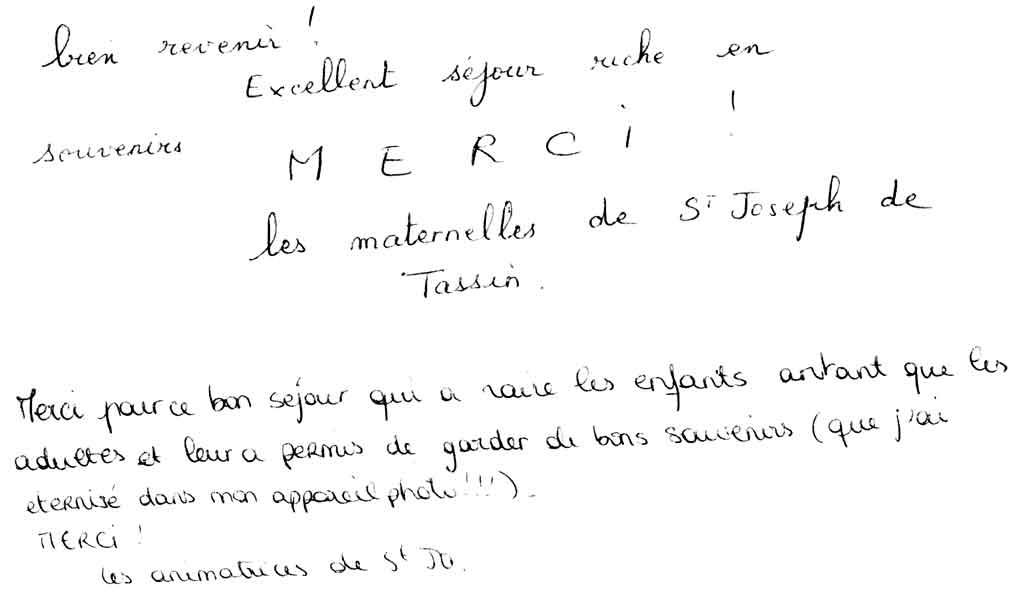 bien revenir !
Excellent séjour riche en
souvenirs
M E R C i !
les maternelles de St Joseph de
Tassin.
Merci pour ce bon séjour qui a ravie les enfants autant que les
adultes et leur a permis de garder de bons souvenirs (que j'ai
eternisé dans mon appareil photo !!!).
MERCi !
les animatrices de St JO.